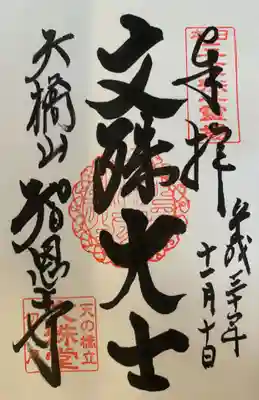 奉拝
平成三十年
十一月十日
文殊大士
天橋山
智恩寺
天の橋立
文殊堂